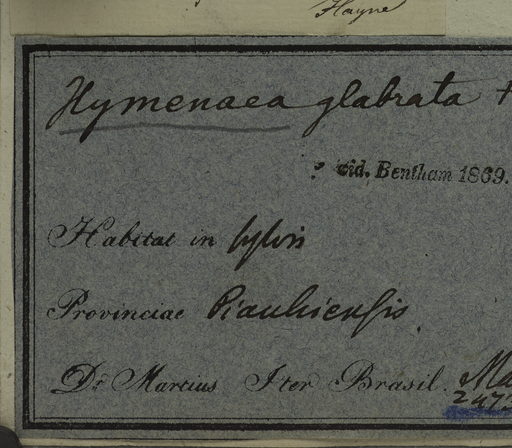 Hayne
Hymenaea glabrata
? vid. Bentham 1869.
Habitat in sylvis
Provinciae Piauhiensis.
Dr. Martius Iter Brasil.